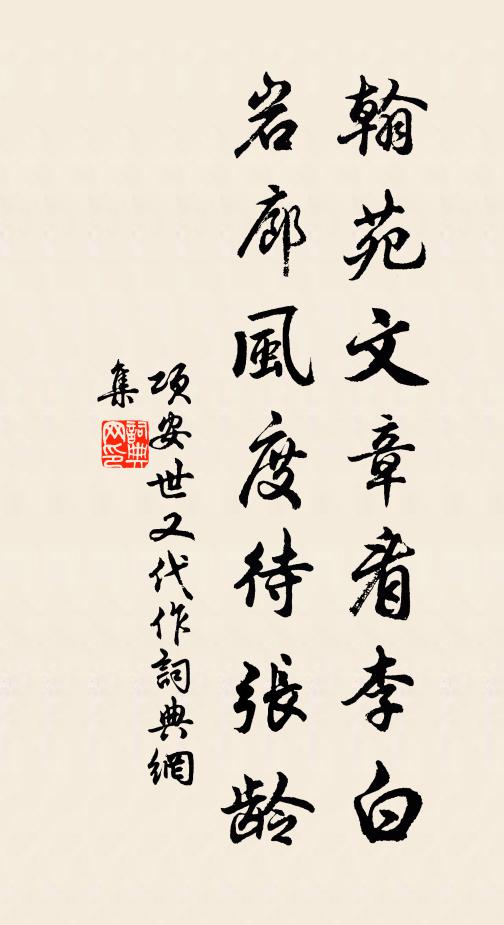 翰苑文章看李白
岩廊風度待張龄
項安世又代作詞典網
集
詞典网印